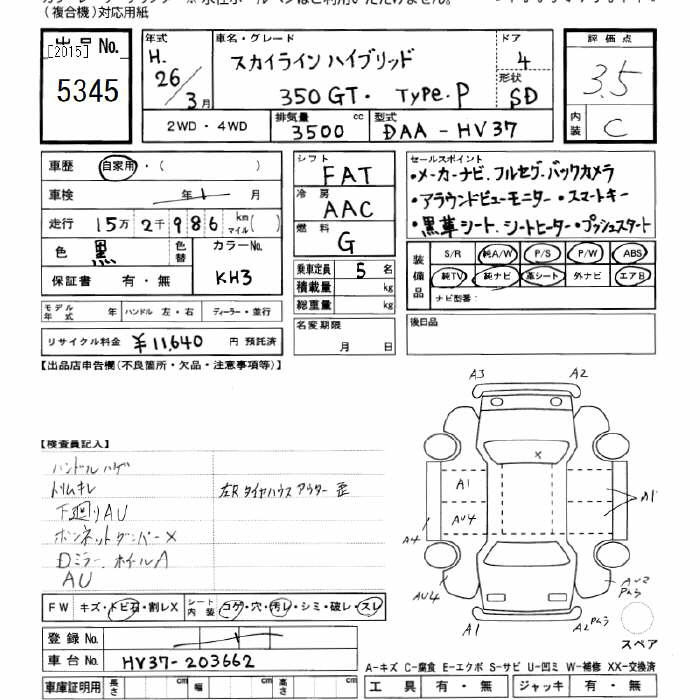 (複合機)対応用紙
出品 No.
[2015]
5345
年式
H.
26/3月
車名・グレード
スカイライン ハイブリッド
350GT. TYPE.P
ドア
4
形状
SD
評価点
3.5
内装
C
2WD・4WD
排気量
3500 cc
型式
DAA-HV37
車歴 自家用・( )
車検 年 1 月
走行 15万2千986 km マイル( )
色 黒
色替
カラーNo.
KH3
保証書 有・無
モデル年式 年 ハンドル 左・右 ディーラー・並行
リサイクル料金 ¥11,640 円 預託済
シフト
FAT
冷房
AAC
燃料
G
乗車定員 5 名
積載量 kg
総重量 kg
名変期限
月 日
セールスポイント
・メーカーナビ.フルセグ.バックカメラ
・アラウンドビューモニター・スマートキー
・黒革シート.シートヒーター・プッシュスタート
装備品
S/R 純A/W P/S P/W ABS
純TV 純ナビ 革シート 外ナビ エアB
ナビ型番:
後日品
【出品店申告欄(不良箇所・欠品・注意事項等)】
【検査員記入】
ハンドルハゲ
トリムキレ
左Rタイヤハウスアウター歪
下廻りAU
ボンネットダンパーX
Dミラー.ホイールA
AU
A3
A2
X
A1
AU4
A1
A4
AU4
AU2
A1
A2
FW キズ・トビ石・割レX
シート内装 コゲ・穴・汚レ・シミ・破レ・スレ
スペア
登録 No.
車台 No. HV37-203662
車庫証明用 長さ cm 幅 cm 高さ cm
A-キズ C-腐食 E-エクボ S-サビ U-凹ミ W-補修 XX-交換済
工具 有・無 ジャッキ 有・無